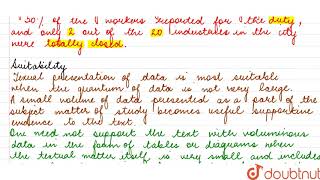 "50% of the workers reported for the duty,
and only 2 out of the 20 industries in the city
were totally closed.
Suitability
Textual presentation of data is most suitable
when the quantum of data is not very large.
A small volume of data presented as a part of the
subject matter of study becomes useful supportive
evidence to the text.
One need not support the text with voluminous
data in the form of tables or diagrams when
the textual matter itself is very small and includes
doubtnut